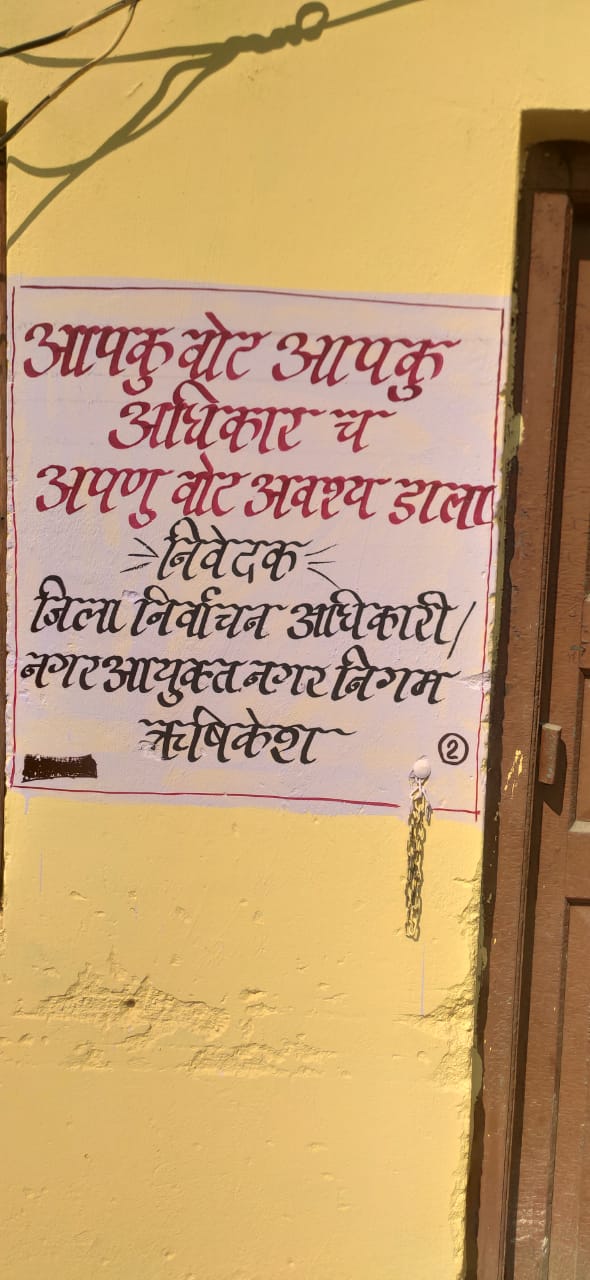 आपकु वोट आपकु
अधिकार च
अपणु वोट अवश्य डाला
निवेदक
जिला निर्वाचन अधिकारी/
नगर आयुक्त नगर निगम
ऋषिकेश
2